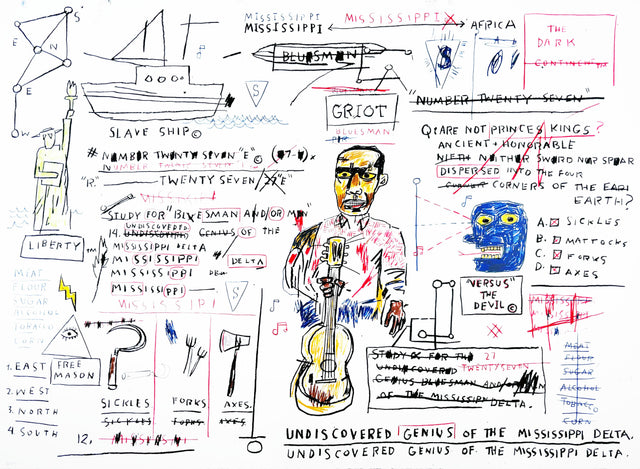 N
E
S
E
W
S
MISSISSIPPI
MISSISSIPPI
MISSISSIPPI
AFRICA
THE
DARK
CONTINENT
BLUESMAN
S
SLAVE SHIP©
GRIOT
BLUESMAN
"NUMBER TWENTY SEVEN"
Q: ARE NOT PRINCES KINGS?
ANCIENT + HONORABLE
NEITH NEITHER SWORD NOR SPEAR
DISPERSED INTO THE FOUR
CORNERS OF THE EARI
EARTH?
# NUMBER TWENTY SEVEN "E" ©
NUMBER TWENTY SEVEN
"R." TWENTY SEVEN/27 "E"
STUDY FOR "BLUESMAN AND/OR MAN"
UNDISCOVERED
14. UNDISCOVERED GENIUS OF THE
MISSISSIPPI DELTA
MISSISSIPPI
DELTA
MISSISSIPPI
MISSISSIPPI
MISSISSIPPI
S
LIBERTY
A. SICKLES
B. MATTOCKS
C. FORKS
D. AXES
"VERSUS"
THE
DEVIL ©
MEAT
FLOUR
SUGAR
ALCOHOL
TOBACCO
CORN
FREE
MASON
1. EAST
2. WEST
3. NORTH
4. SOUTH
SICKLES
SICKLES
FORKS
FORKS
AXES.
AXES
12.
MISSISSIPPI
STUDY FOR THE 27
UNDISCOVERED TWENTYSEVEN
GENIUS BLUESMAN AND/OR MAN
OF THE MISSISSIPPI DELTA.
MEAT
FLOUR
SUGAR
ALCOHOL
TOBACCO
CORN
UNDISCOVERED GENIUS OF THE MISSISSIPPI DELTA.
UNDISCOVERED GENIUS OF THE MISSISSIPPI DELTA.